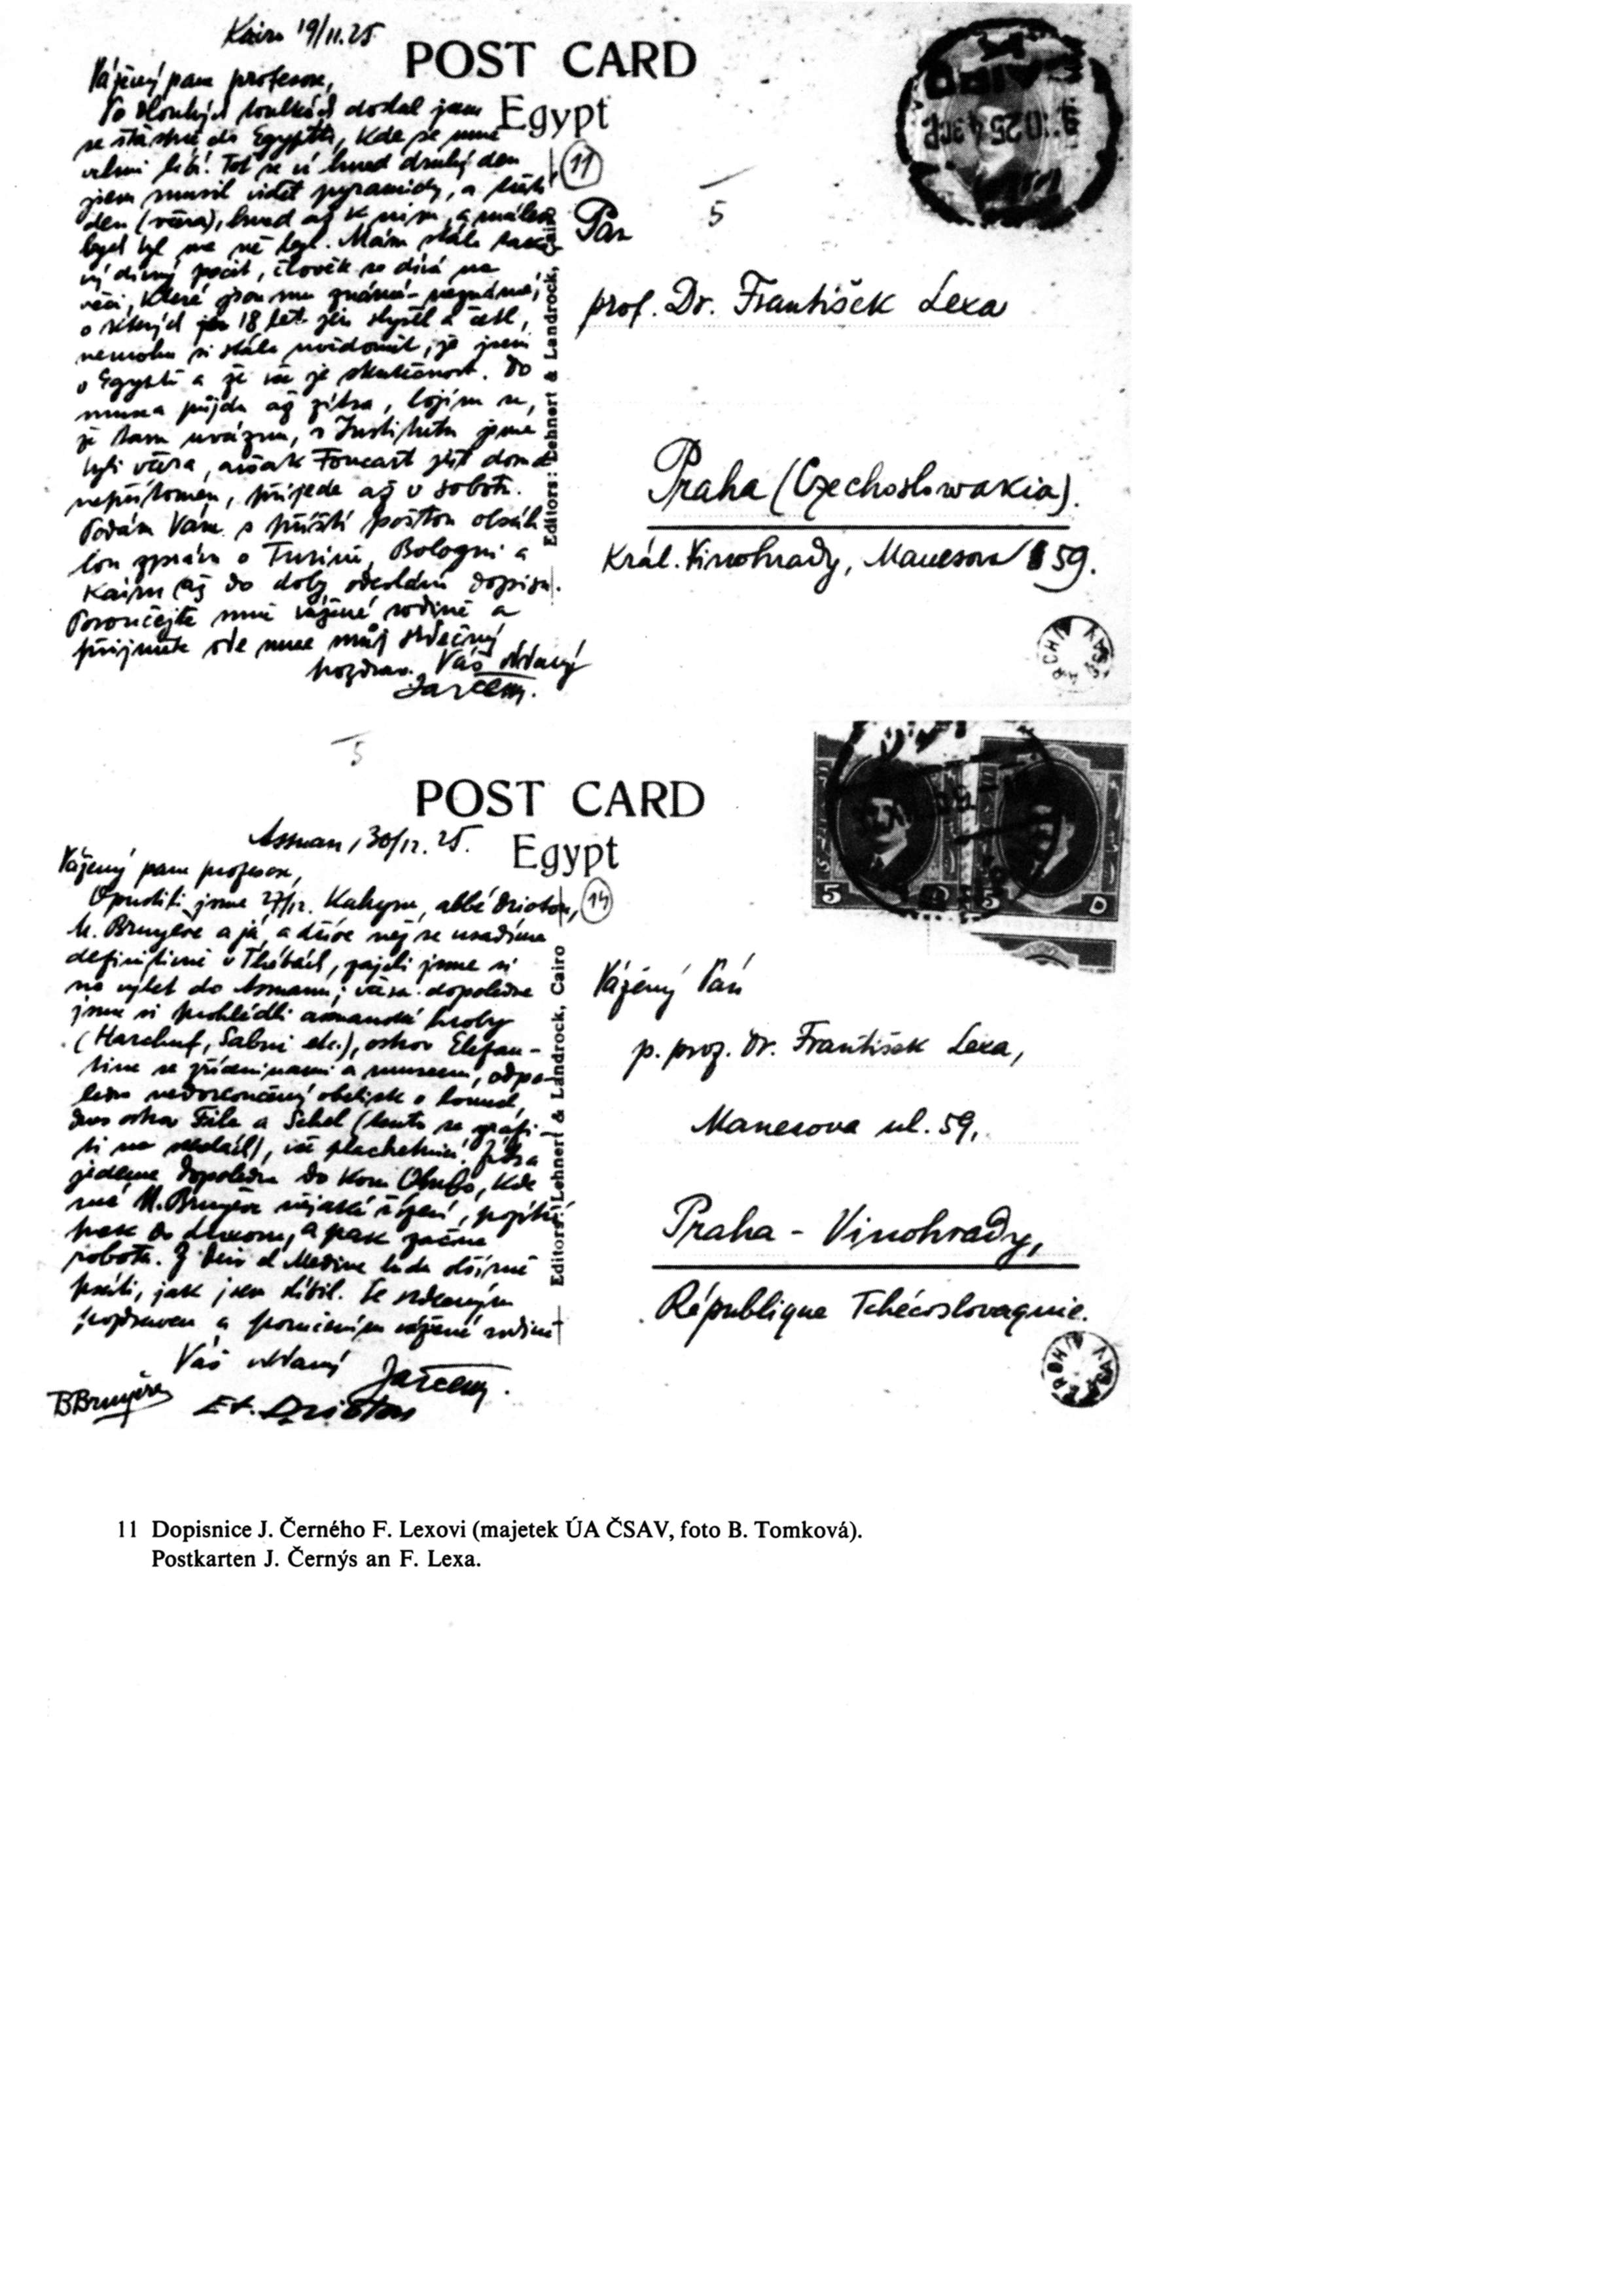 Kairo 19/11.25
POST CARD
Egypt
11
Vážený pane profesore,
Po dlouhých toulkách dostal jsem
se šťastně do Egypta, kde se mně
velmi líbí. Tož se ví hned druhý den
jsem musil vidět pyramidy, a třetí
den (včera), hned až k nim, a málem
bych byl na ně lezl. Mám stále takový
divný pocit, člověk se dívá na
věci, které jsou mu známé - neznámé,
o kterých 18 let jen slyšel a četl,
nemohu si stále uvědomit, že jsem
v Egyptě a že vše je skutečnost. Do
musea půjdu až zítra, bojím se,
že tam uváznu, v Institutu jsme
byli včera, avšak Foucart jest dosud
nepřítomen, přijede až v sobotu.
Podám Vám s příští poštou obsáh-
lou zprávu o Turinu, Bologni a
Kairu až do doby odeslání dopisu.
Poroučejte mně vážené rodině a
přijměte ode mne můj srdečný
pozdrav. Váš oddaný
Jar Černý.
Editors: Lehnert & Landrock, Cairo
5
Pan
prof. Dr. František Lexa
Praha (Czechoslowakia).
Král. Vinohrady, Manesova 59.
5
POST CARD
Egypt
14
Assuan, 30/12. 25.
Vážený pane profesore,
Opustili jsme 27/12. Kahyru, abbé Drioton,
M. Bruyère a já, a dříve než se usadíme
definitivně v Thébách, zajeli jsme si
na výlet do Assuanu; včera dopoledne
jsme si prohlédli assuanské hroby
(Harchuf, Sabni etc.), ostrov Elefan-
tine se zříceninami a museem, odpo-
ledne nedokončený obelisk v lomech,
dnes ostrov File a Sehel (tento se graffi-
ti na skalách), vše plachetnicí. Zítra
jedeme dopoledne do Kom Ombo, kde
má M. Bruyère nějaké řízení, pozítří
pak do Luxoru, a pak začne
robota. Z Deir el Medine budu obšírně
psáti, jak jsem slíbil. Se srdečným
pozdravem a poručením vážené rodině
Váš oddaný Jar Černý.
BBruyère Et. Drioton
Editors: Lehnert & Landrock, Cairo
5 5 D
Vážený Pán
p. prof. Dr. František Lexa,
Manesova ul. 59,
Praha - Vinohrady,
République Tchécoslovaquie.
11 Dopisnice J. Černého F. Lexovi (majetek ÚA ČSAV, foto B. Tomková).
Postkarten J. Černýs an F. Lexa.